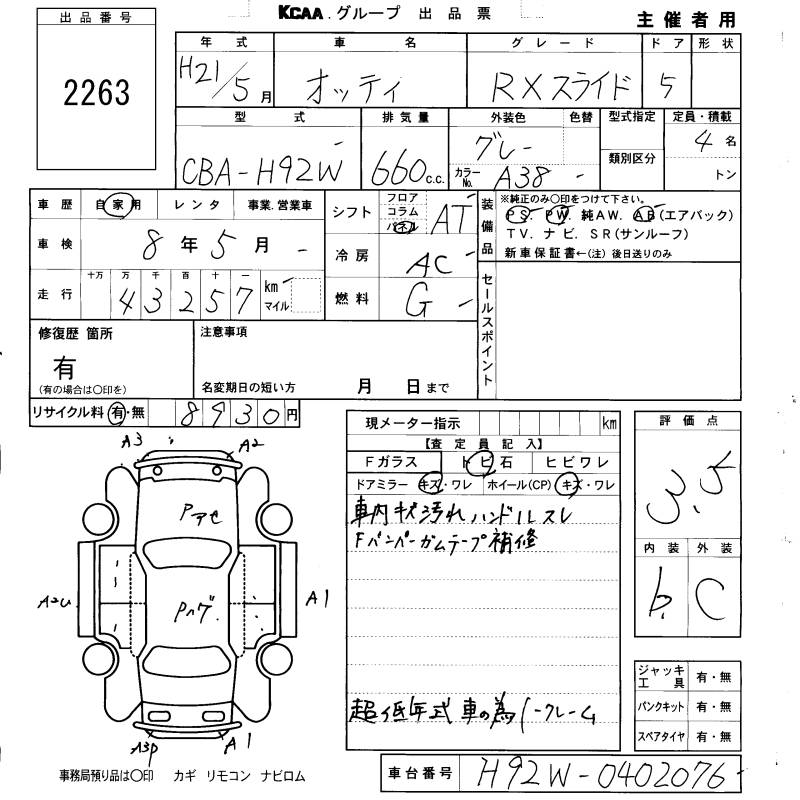 KCAA.グループ 出品票
主催者用
出品番号
2263
年式 車名 グレード ドア 形状
H21/5月 オッティ RXスライド 5
型式 排気量 外装色 色替 型式指定 定員・積載
CBA-H92W 660c.c. グレー 類別区分 4名
カラーNo. A38 - トン
車歴 自家用 レンタ 事業.営業車
シフト フロア コラム パネル AT
装備品 ※純正のみ○印をつけて下さい。
PS. PW. 純AW. AB(エアバック)
TV. ナビ. SR(サンルーフ)
新車保証書←(注) 後日送りのみ
車検 8年5月 -
冷房 AC
走行 十万 万 千 百 十 一
43257 km マイル
燃料 G -
セールスポイント
修復歴 箇所
有
(有の場合は○印を)
注意事項
名変期日の短い方 月 日まで
リサイクル料 有・無 8930円
現メーター指示 km
【査定員記入】
Fガラス トビ石 ヒビワレ
ドアミラー キズ・ワレ ホイール(CP) キズ・ワレ
車内キズ汚れ ハンドルスレ
Fバンパーガムテープ補修
超低年式車の為ノークレーム
評価点
3.5
内装 外装
b. C
ジャッキ 工具 有・無
パンクキット 有・無
スペアタイヤ 有・無
A3 A2
Pアセ
A2U A1
Pハゲ.
A3P A1
事務局預り品は○印 カギ リモコン ナビロム
車台番号 H92W-0402076-